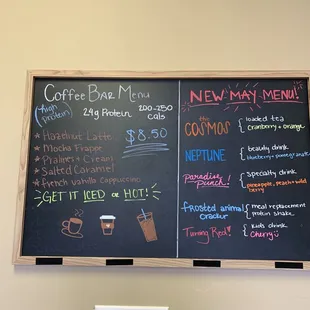 Coffee Bar Menu
(high protein)
24g Protein
200-250 cals
* Hazelnut Latte
* Mocha Frappe
* Pralines + Cream
* Salted Caramel
* french vanilla cappuccino
$8.50
GET IT ICED or HOT!
NEW MAY MENU!
the COSMOS { loaded tea
cranberry + orange
NEPTUNE { beauty drink
blueberry + pomegranate
Paradise Punch! { specialty drink
pineapple, peach + wild berry
Frosted animal cracker { meal replacement
protein shake
Turning Red { kids drink
Cherry